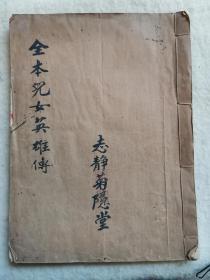 全本兒女英雄傳
志静菊隱堂